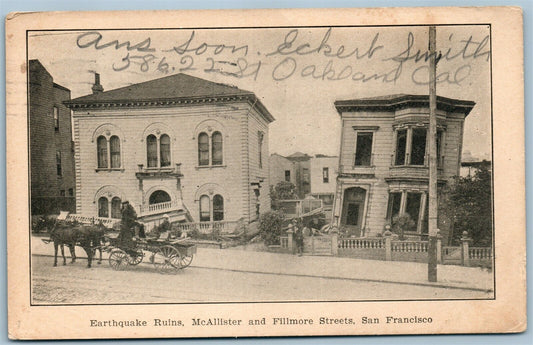 Ans Soon. Eckert Smith
586. 22 St Oakland Cal
Earthquake Ruins, McAllister and Fillmore Streets, San Francisco